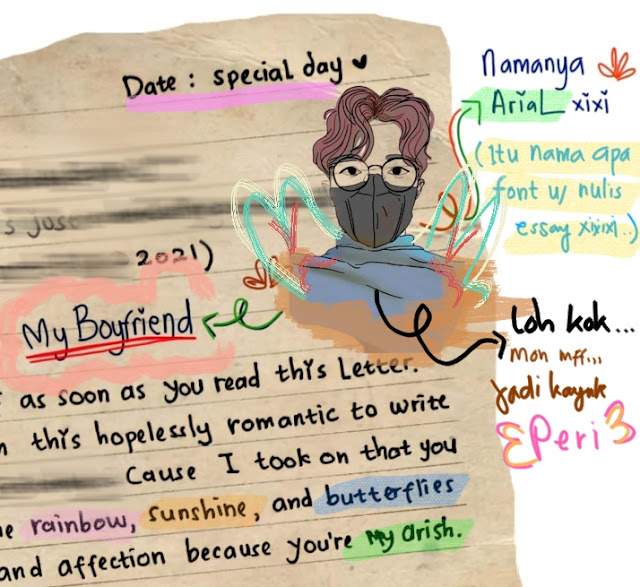 Date : special day
2021)
My Boyfriend
as soon as you read this Letter.
this hopelessly romantic to write
Cause I took on that you
rainbow, sunshine, and butterflies
and affection because you're My Arish.
Namanya
Arial xixi
(Itu nama apa
font u/ nulis
essay xixixi..)
Loh kok...
Mon mff...
Jadi kayak
Peri